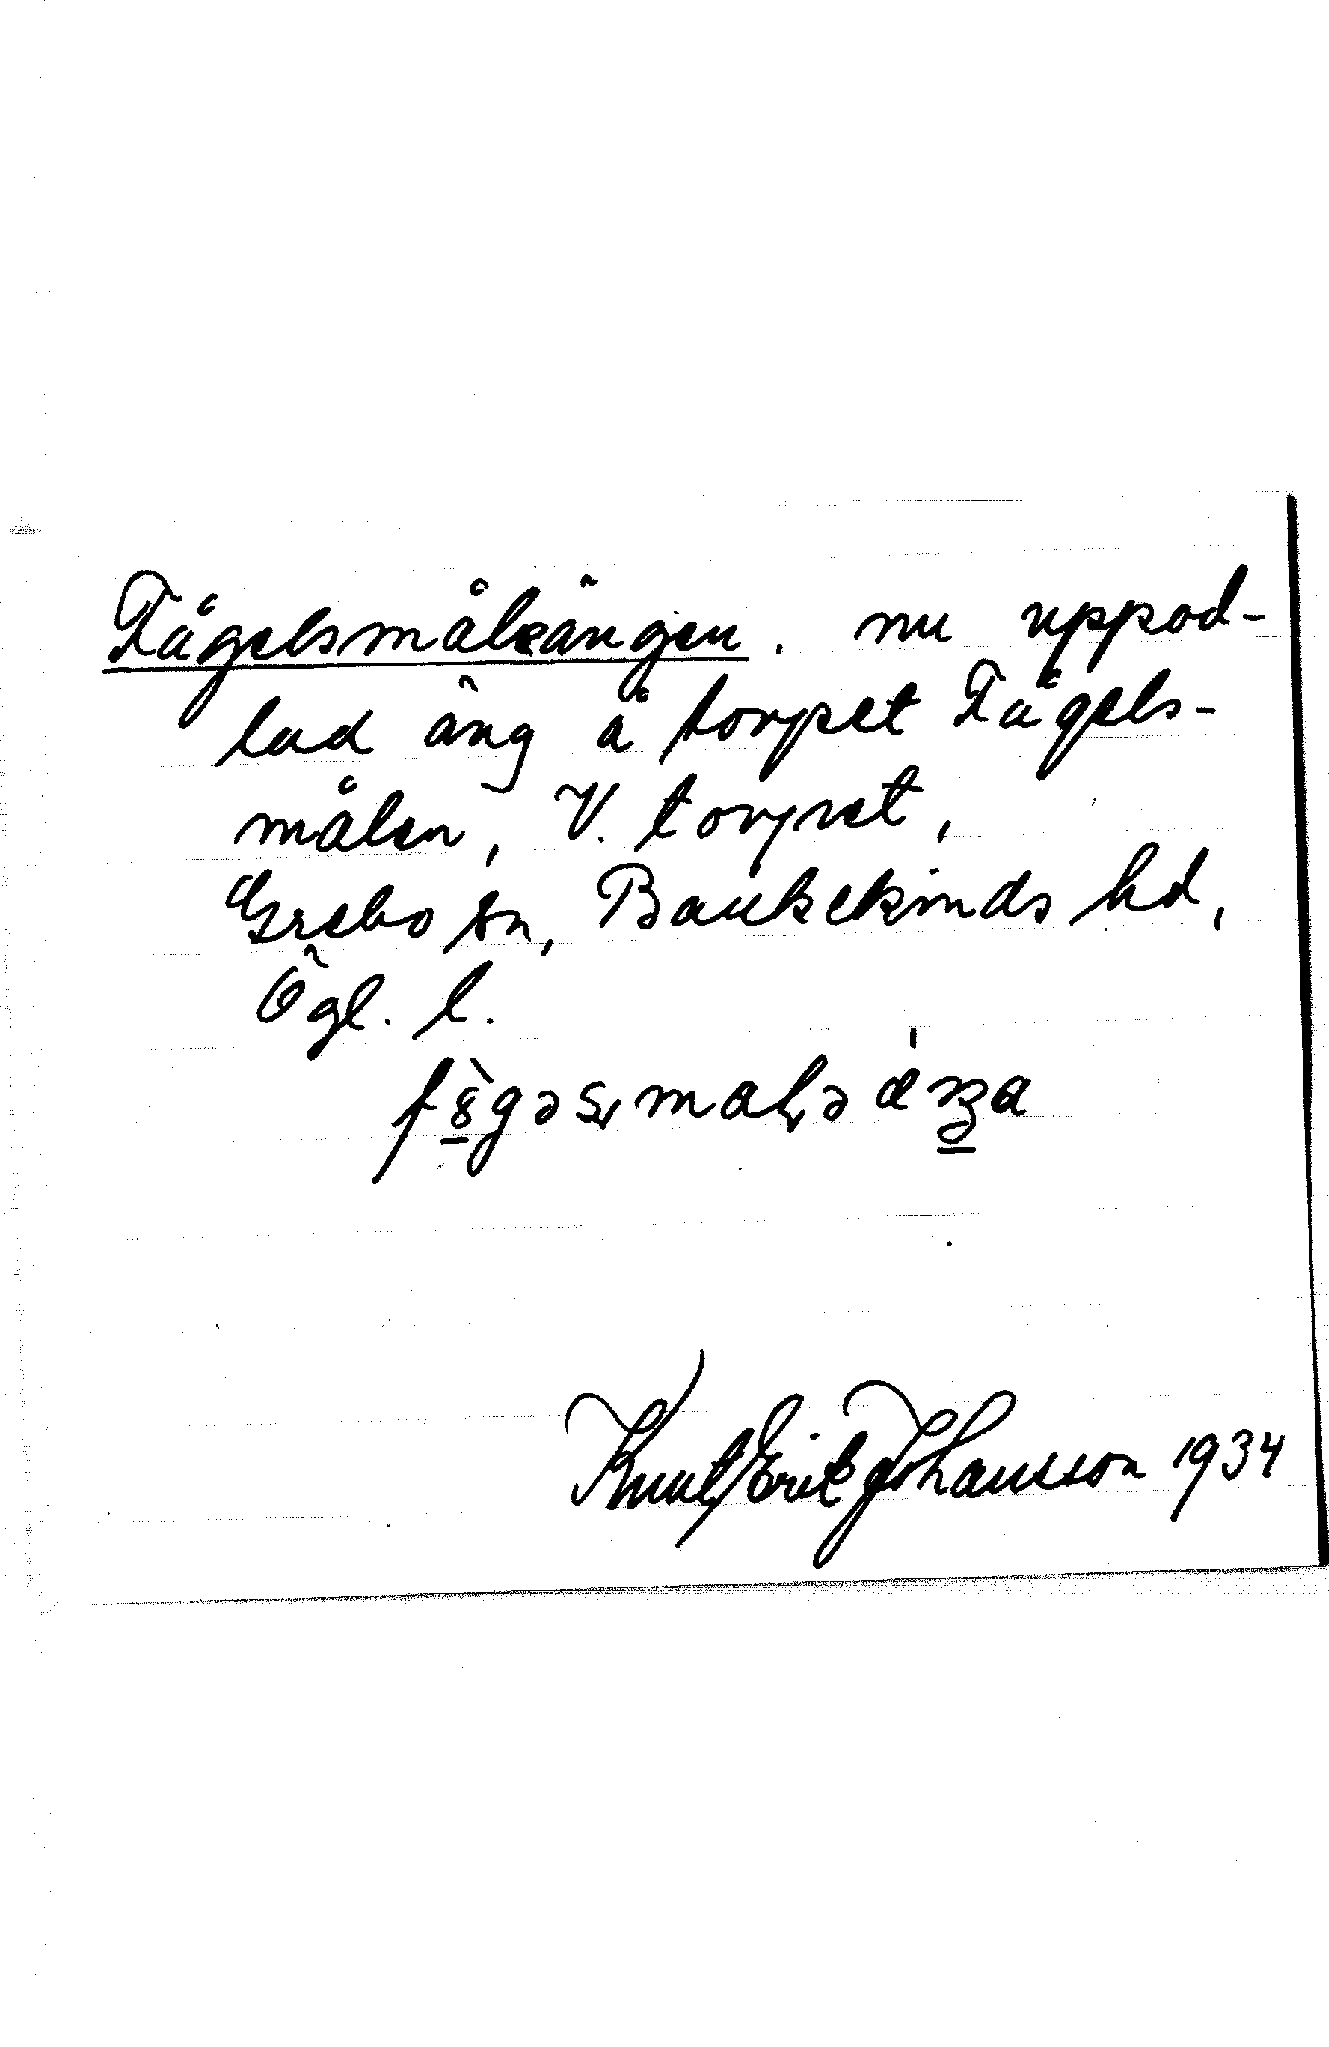 Fågelsmåleängen. nu uppod-
lad äng å torpet Fågels-
målen, V. torpet,
Grebo sn, Bankekinds hd,
Ögl. l.
Knut Erik Johansson 1934